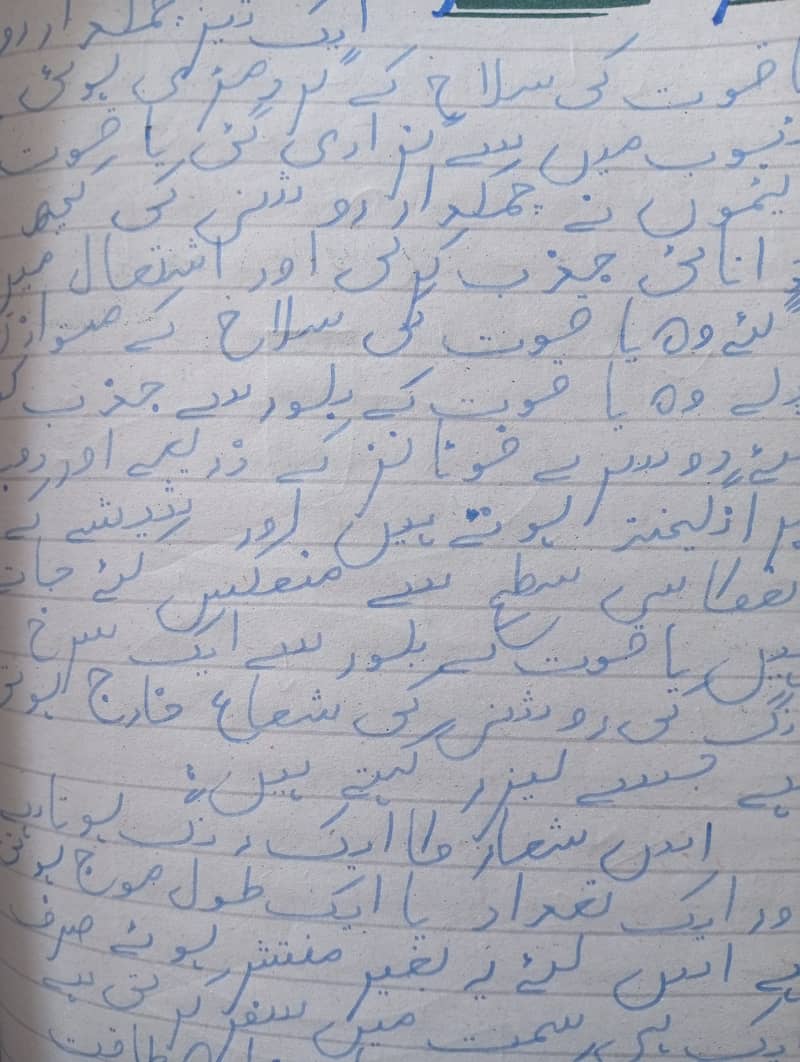 ایک تیز چمکدار رو
قوت کی سلاخ کے گرد مڑی ہوئی
ٹیوب میں سے گزاری گئی یا قوت
ایٹموں نے چمکدار روشنی کی کچھ
انائی جذب کرلی اور اشتعال میں
لئے وہ یا قوت کی سلاخ کے متواز
لے وہ یا قوت کے بلور سے جذب
دوسرے فوٹانز کے ذریعے اور
انگیختہ ہوتے ہیں اور شیشے کے
سطح سے منعکس کئے جاتے
ہیں یا قوت کے بلور سے ایک سرخ
رنگ کی روشنی کی شعاع خارج ہوتی
ہے جسے لیزر کہتے ہیں۔
اس شعاع کا ایک رنگ ہوتا ہے
ور ایک تعداد یا ایک طول موج ہوتی
ہے اس لئے یہ بغیر منتشر ہوئے صرف
یک ہی سمت میں سفر کرتی ہے
طاقت